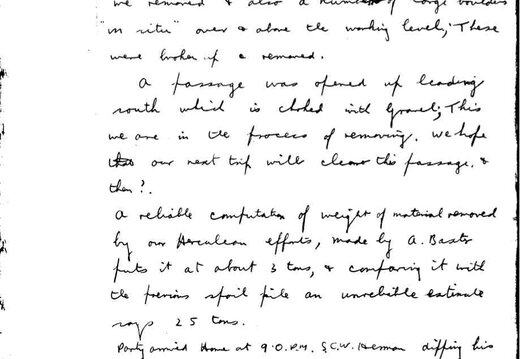 we removed & also a number of large boulders
"in situ" over & above the working level; These
were broken up & removed.
A passage was opened up leading
south which is choked with Gravel; This
we are in the process of removing. We hope
our next trip will clear this passage, &
then?.
A reliable computation of weight of material removed
by our Herculean efforts, made by A. Baxter
puts it at about 3 tons, & comparing it with
the previous spoil pile an unreliable estimate
says 25 tons.
Party arrived Home at 9.0.P.M. S.C.W. Herman his